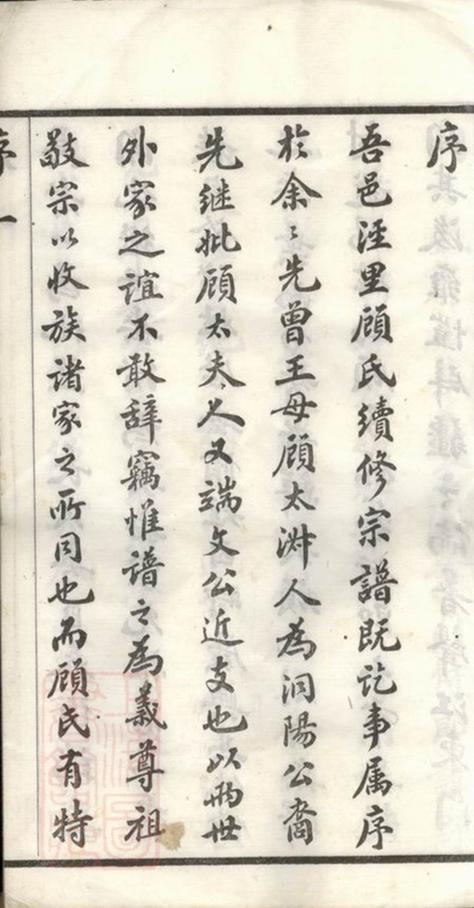 序
吾邑涇里顧氏續修宗譜既訖事属序
於余〻先曾王母顧太淑人為洞陽公裔
先继妣顧太夫人又端文公近支也以兩世
外家之誼不敢辭竊惟譜之為義尊祖
敬宗以收族諸家之所同也而顧氏有特
序一